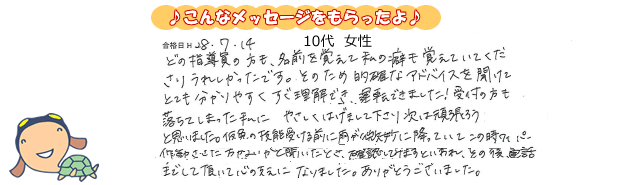 ♪こんなメッセージをもらったよ♪
合格日 H28・7・14 10代 女性
どの指導員の方も、名前を覚えて私の癖も覚えていてくだ
さりうれしかったです。そのため的確なアドバイスを聞けて
とても分かりやすくすぐ理解でき、運転できました!受付の方も
落ちてしまった私に やさしくはげまして下さり次は頑張ろう
と思いました。仮免の技能受ける前に雨が微妙に降っていてこの時ワイパー
作動させた方がよいかと聞いたとき、確認してきますといわれ、その後、電話
までして頂いて心のささえになりました。ありがとうございました。